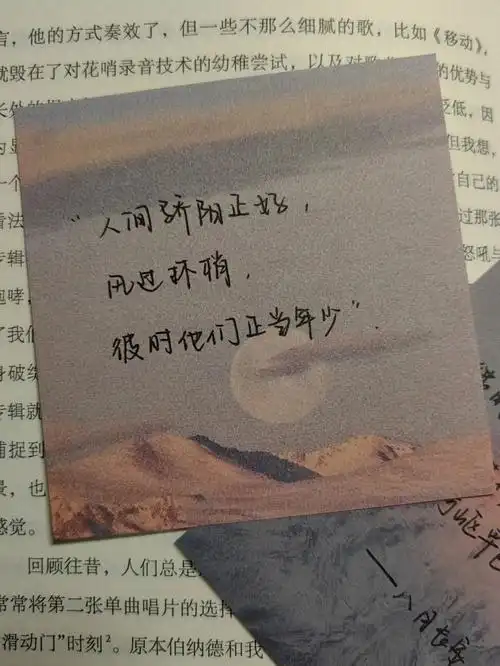 言，他的方式奏效了，但一些不那么细腻的歌，比如《移动》，
就毁在了对花哨录音技术的幼稚尝试，以及对 的优势与
长处的 贬低，因
但我想，
一个 自己的
看法 过那张
专辑 怒吼与
咆哮，
“人间骄阳正好，
风过林梢，
彼时他们正当年少”.
了我们
身破绽
专辑就
捕捉到
景，也
感觉。
回顾往昔，人们总是
常常将第二张单曲唱片的选择
滑动门”时刻²。原本伯纳德和我
——八月长安